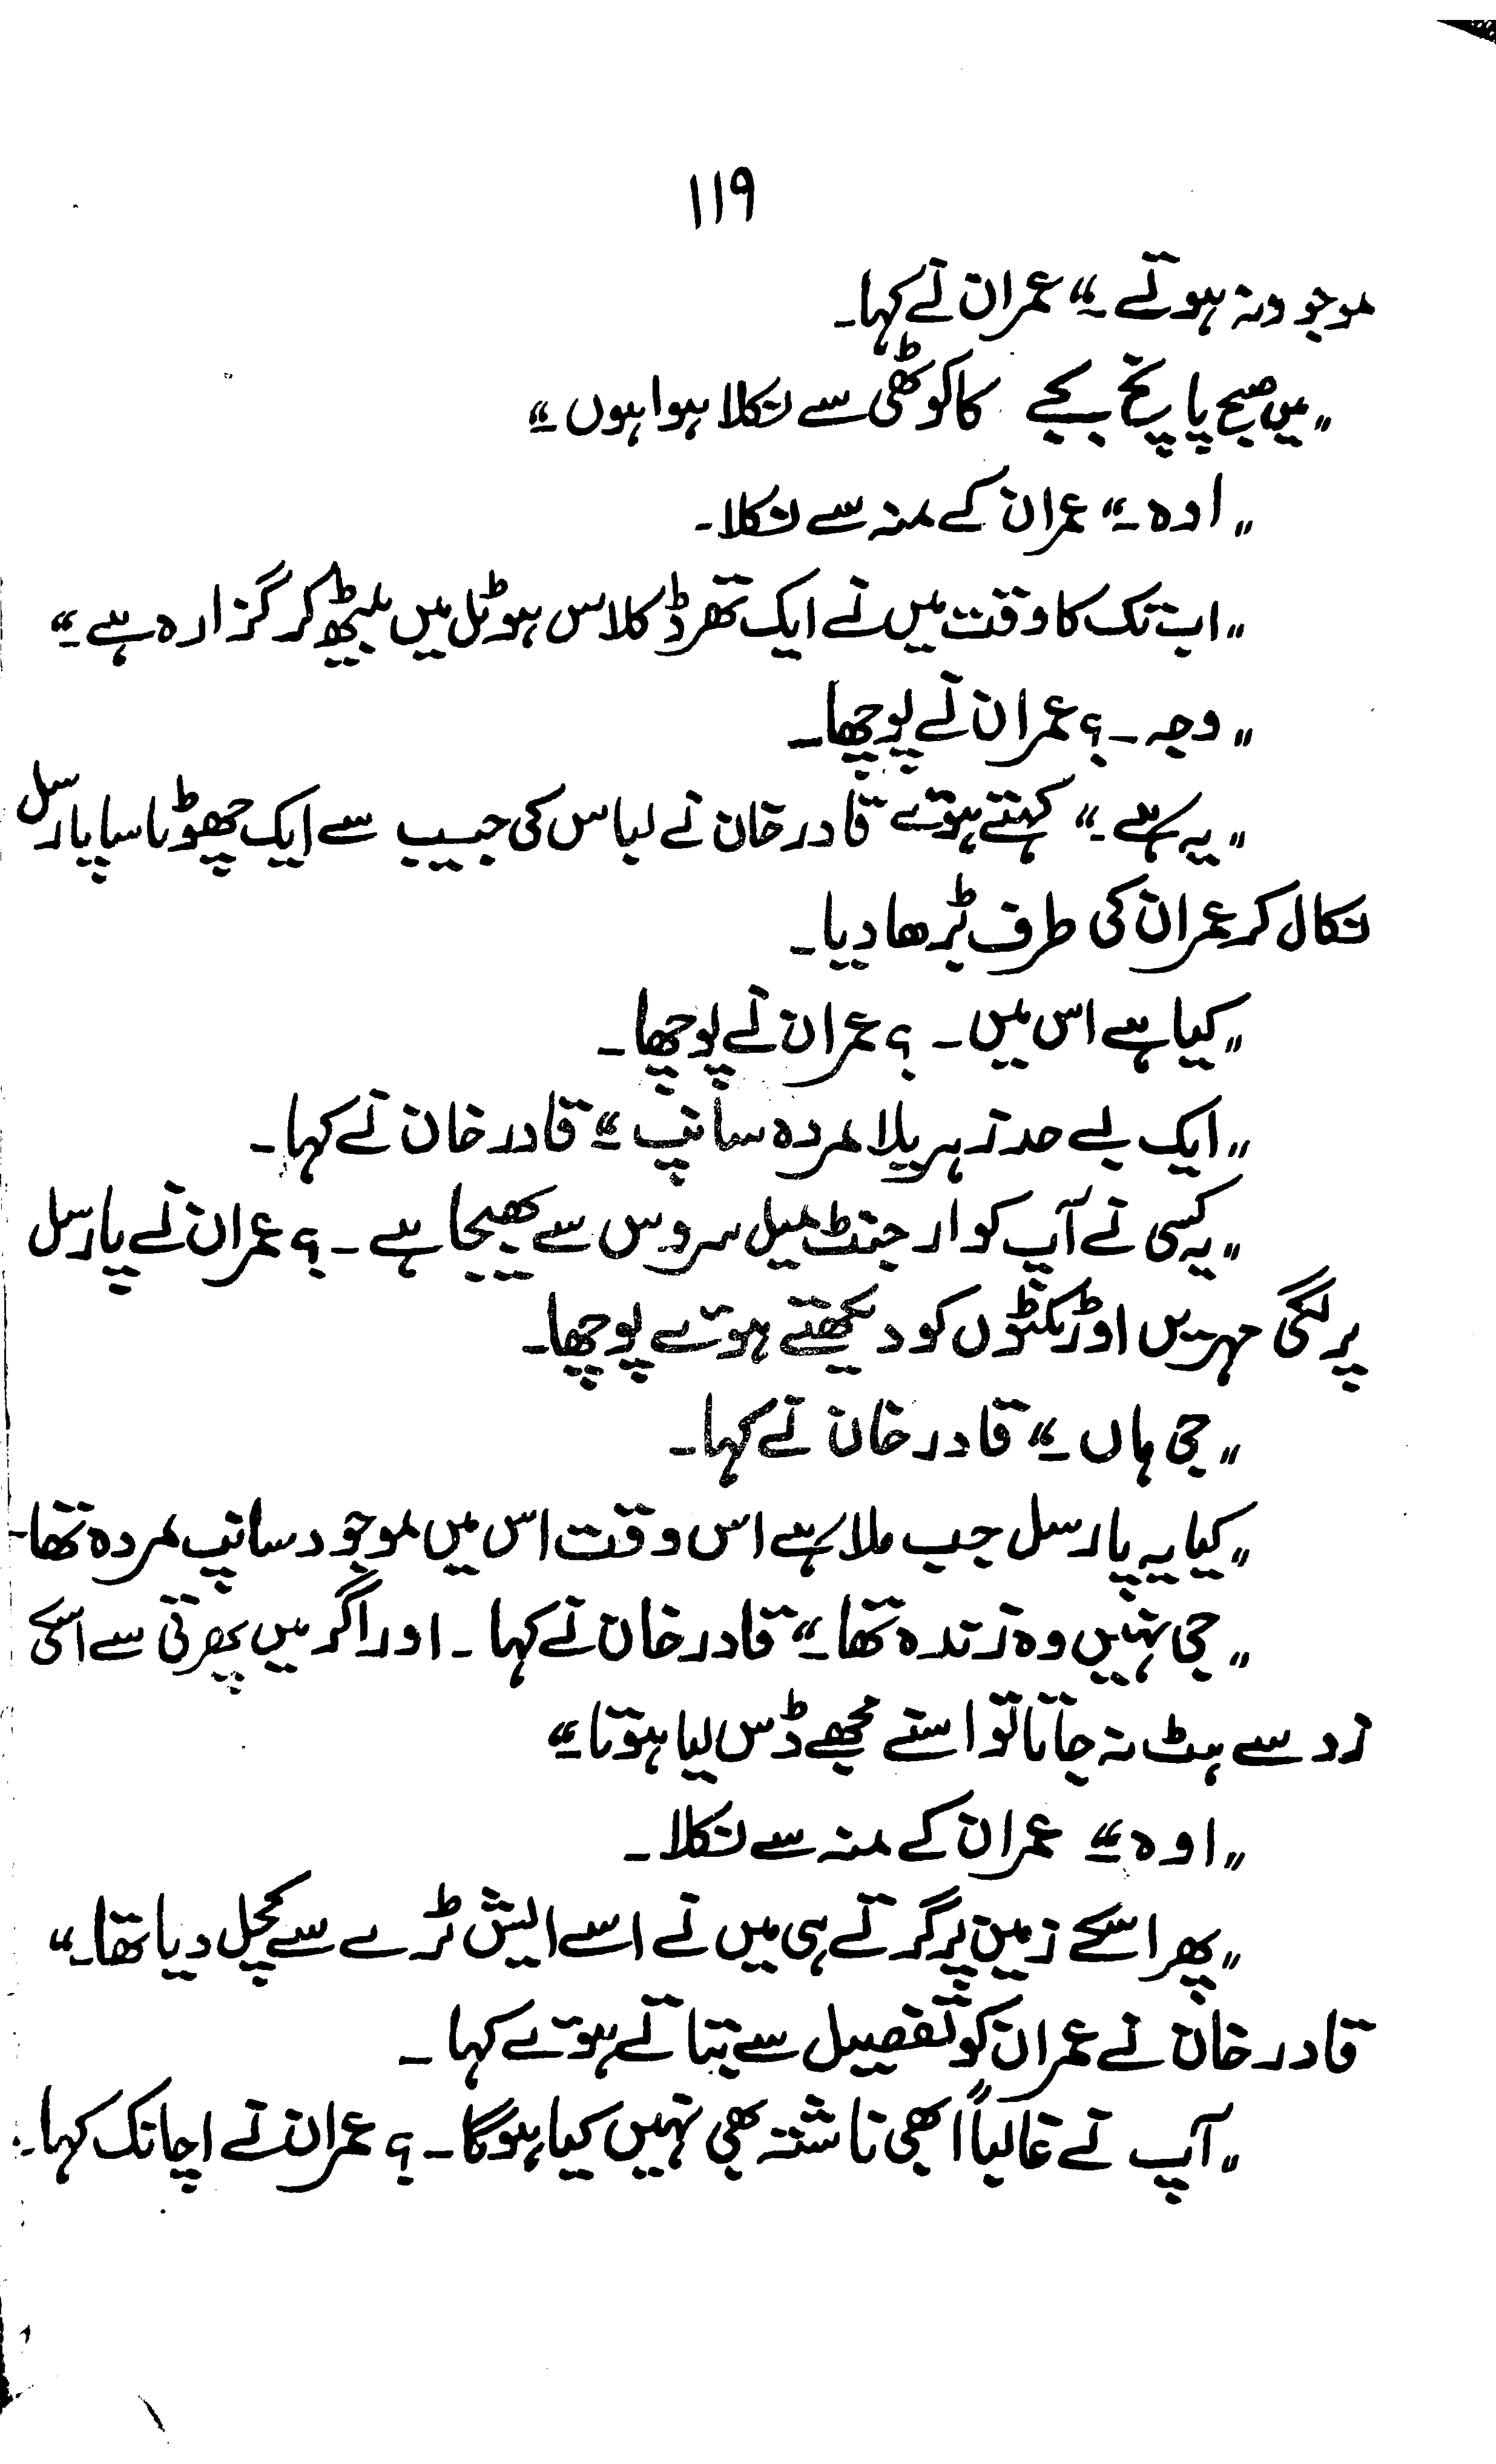 ۱۱۹
موجود نہ ہوتے ۔" عمران نے کہا۔
"میں صبح پانچ بجے کا کوٹھی سے نکلا ہوا ہوں ۔"
"اوہ ۔" عمران کے منہ سے نکلا۔
"اب تک کا وقت میں نے ایک تھرڈ کلاس ہوٹل میں بیٹھ کر گزارہ ہے ۔"
"وجہ ۔؟ عمران نے پوچھا۔
"یہ ہے ۔" کہتے ہوئے قادر خان نے لباس کی جیب سے ایک چھوٹا سا پارسل
نکال کر عمران کی طرف بڑھا دیا۔
"کیا ہے اس میں ۔؟ عمران نے پوچھا۔
"ایک بے حد زہریلا مردہ سانپ ۔" قادر خان نے کہا۔
"یہ کسی نے آپ کو ارجنٹ میل سروس سے بھیجا ہے ۔؟ عمران نے پارسل
پر لگی مہریں اوڑ ٹکٹوں کو دیکھتے ہوئے پوچھا۔
"جی ہاں ۔" قادر خان نے کہا۔
"کیا یہ پارسل جب ملا ہے اس وقت اس میں موجود سانپ مردہ تھا۔
"جی نہیں وہ زندہ تھا ۔" قادر خان نے کہا ۔ اور اگر میں پھرتی سے اسکی
زد سے ہٹ نہ جاتا تو اسنے مجھے ڈس لیا ہوتا ۔"
"اوہ ۔" عمران کے منہ سے نکلا ۔
"پھر اسکے زمین پر گرتے ہی میں نے اسے ایش ٹرے سے کچل دیا تھا ۔"
قادر خان نے عمران کو تفصیل سے بتاتے ہوئے کہا ۔
"آپ نے غالباً ابھی ناشتہ بھی نہیں کیا ہوگا ۔؟ عمران نے اچانک کہا۔